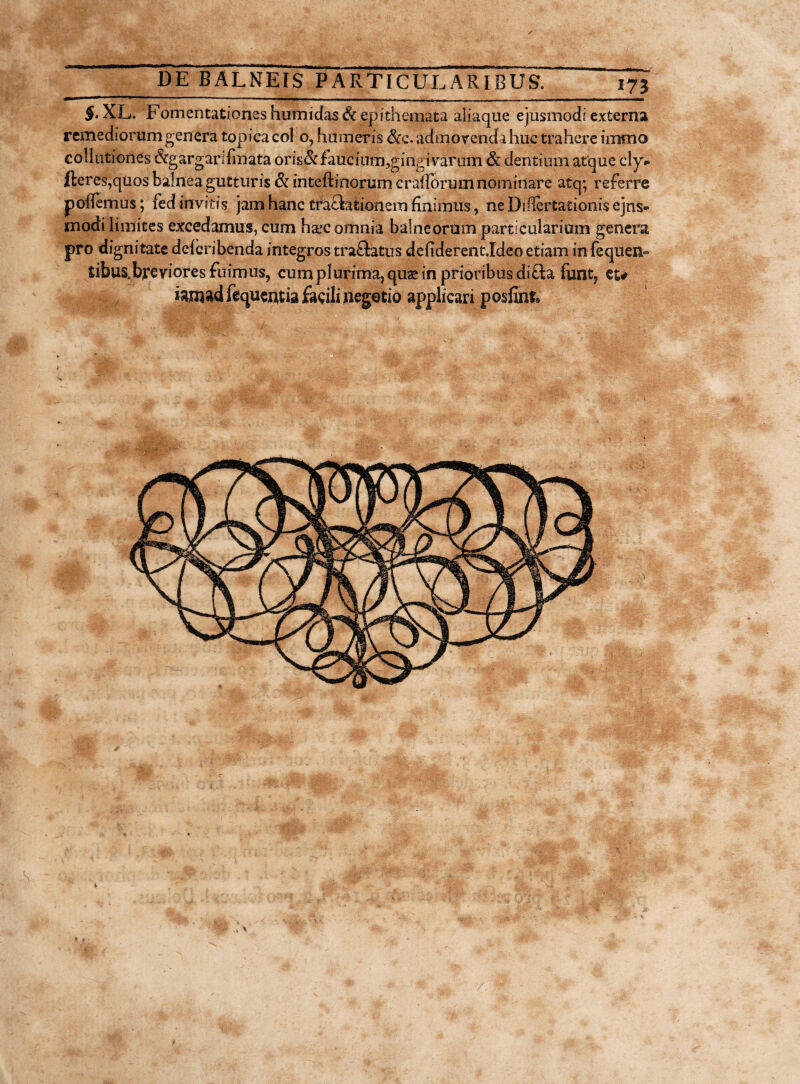 DE BALNEIS PARTICULARIBUS. 173
§. XL. Fomentationes humidas & epithemata aliaque ejusmodi externa
remediorum genera topica collo, humeris &c. admovenda huc trahere immo
collutiones & gargariſmata oris & faucium, gingivarum & dentium atque cly-
ſteres, quos balnea gutturis & inteſtinorum craſſorum nominare atq; referre
poſſemus; ſed invitis jam hanc tractationem finimus, ne Diſſertationis ejus-
modi limites excedamus, cum hæc omnia balneorum particularium genera
pro dignitate deſcribenda integros tractatus deſiderent. Ideo etiam in ſequen-
tibus breviores fuimus, cum plurima, quæ in prioribus dicta ſunt, et-
iam ad ſequentia facili negotio applicari posſint.